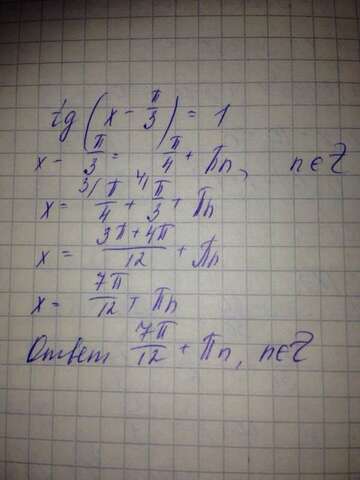 tg(x - π/3) = 1
x - π/3 = π/4 + πn, n∈Z
x = ³⁾π/4 + ⁴⁾π/3 + πn
x = (3π+4π)/12 + πn
x = 7π/12 + πn
Ответ 7π/12 + πn, n∈Z